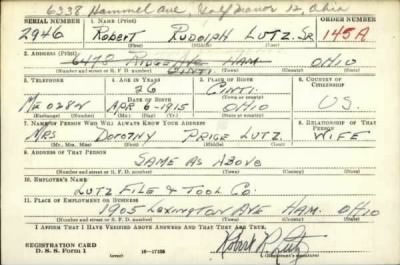 6338 Hammel Ave Golf Manor 12, Ohio
SERIAL NUMBER 1. NAME (Print) ORDER NUMBER
2946 ROBERT RUDOLPH LUTZ. SR 145A
(First) (Middle) (Last)
2. ADDRESS (Print)
6478 RIDGE AVE HAM OHIO
CINTI.
(Number and street or R. F. D. number) (Town) (County) (State)
3. TELEPHONE 4. AGE IN YEARS 5. PLACE OF BIRTH 6. COUNTRY OF CITIZENSHIP
26 CINTI.
DATE OF BIRTH
ME 0282 APR 6-1915 OHIO U.S.
(Exchange) (Number) (Mo.) (Day) (Yr.) (State or country)
7. NAME OF PERSON WHO WILL ALWAYS KNOW YOUR ADDRESS 8. RELATIONSHIP OF THAT PERSON
MRS DOROTHY PRICE LUTZ. WIFE
(Mr., Mrs., Miss) (First) (Middle) (Last)
9. ADDRESS OF THAT PERSON
SAME AS ABOVE
(Number and street or R. F. D. number) (Town) (County) (State)
10. EMPLOYER'S NAME
LUTZ FILE & TOOL CO.
11. PLACE OF EMPLOYMENT OR BUSINESS
1905 LEXINGTON AVE HAM. OHIO
(Number and street or R. F. D. number) (Town) (County) (State)
I AFFIRM THAT I HAVE VERIFIED ABOVE ANSWERS AND THAT THEY ARE TRUE.
REGISTRATION CARD
D. S. S. Form 1 16-17105
Robert R Lutz
(Registrant's signature)